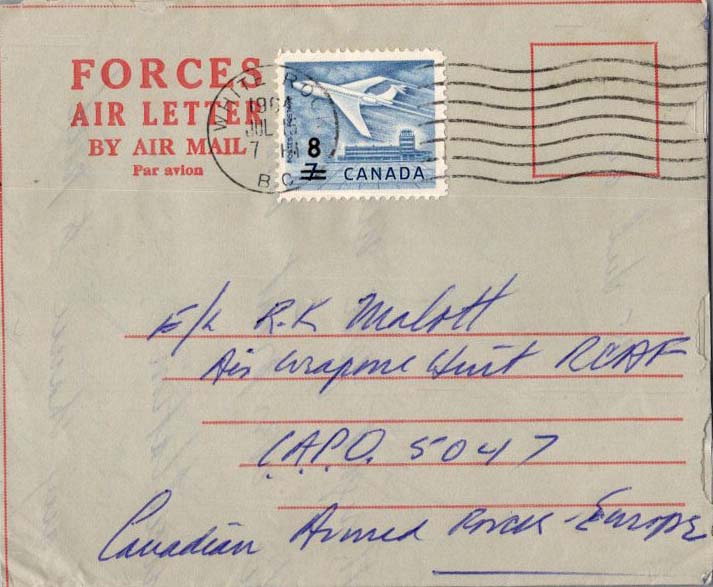 FORCES
AIR LETTER
BY AIR MAIL
Par avion
WHITE ROCK
1964
JUL 15
7 PM
B.C.
8
7
CANADA
F/L R.K Malott
Air Weapons Unit RCAF
C.A.P.O. 5047
Canadian Armed Forces - Europe